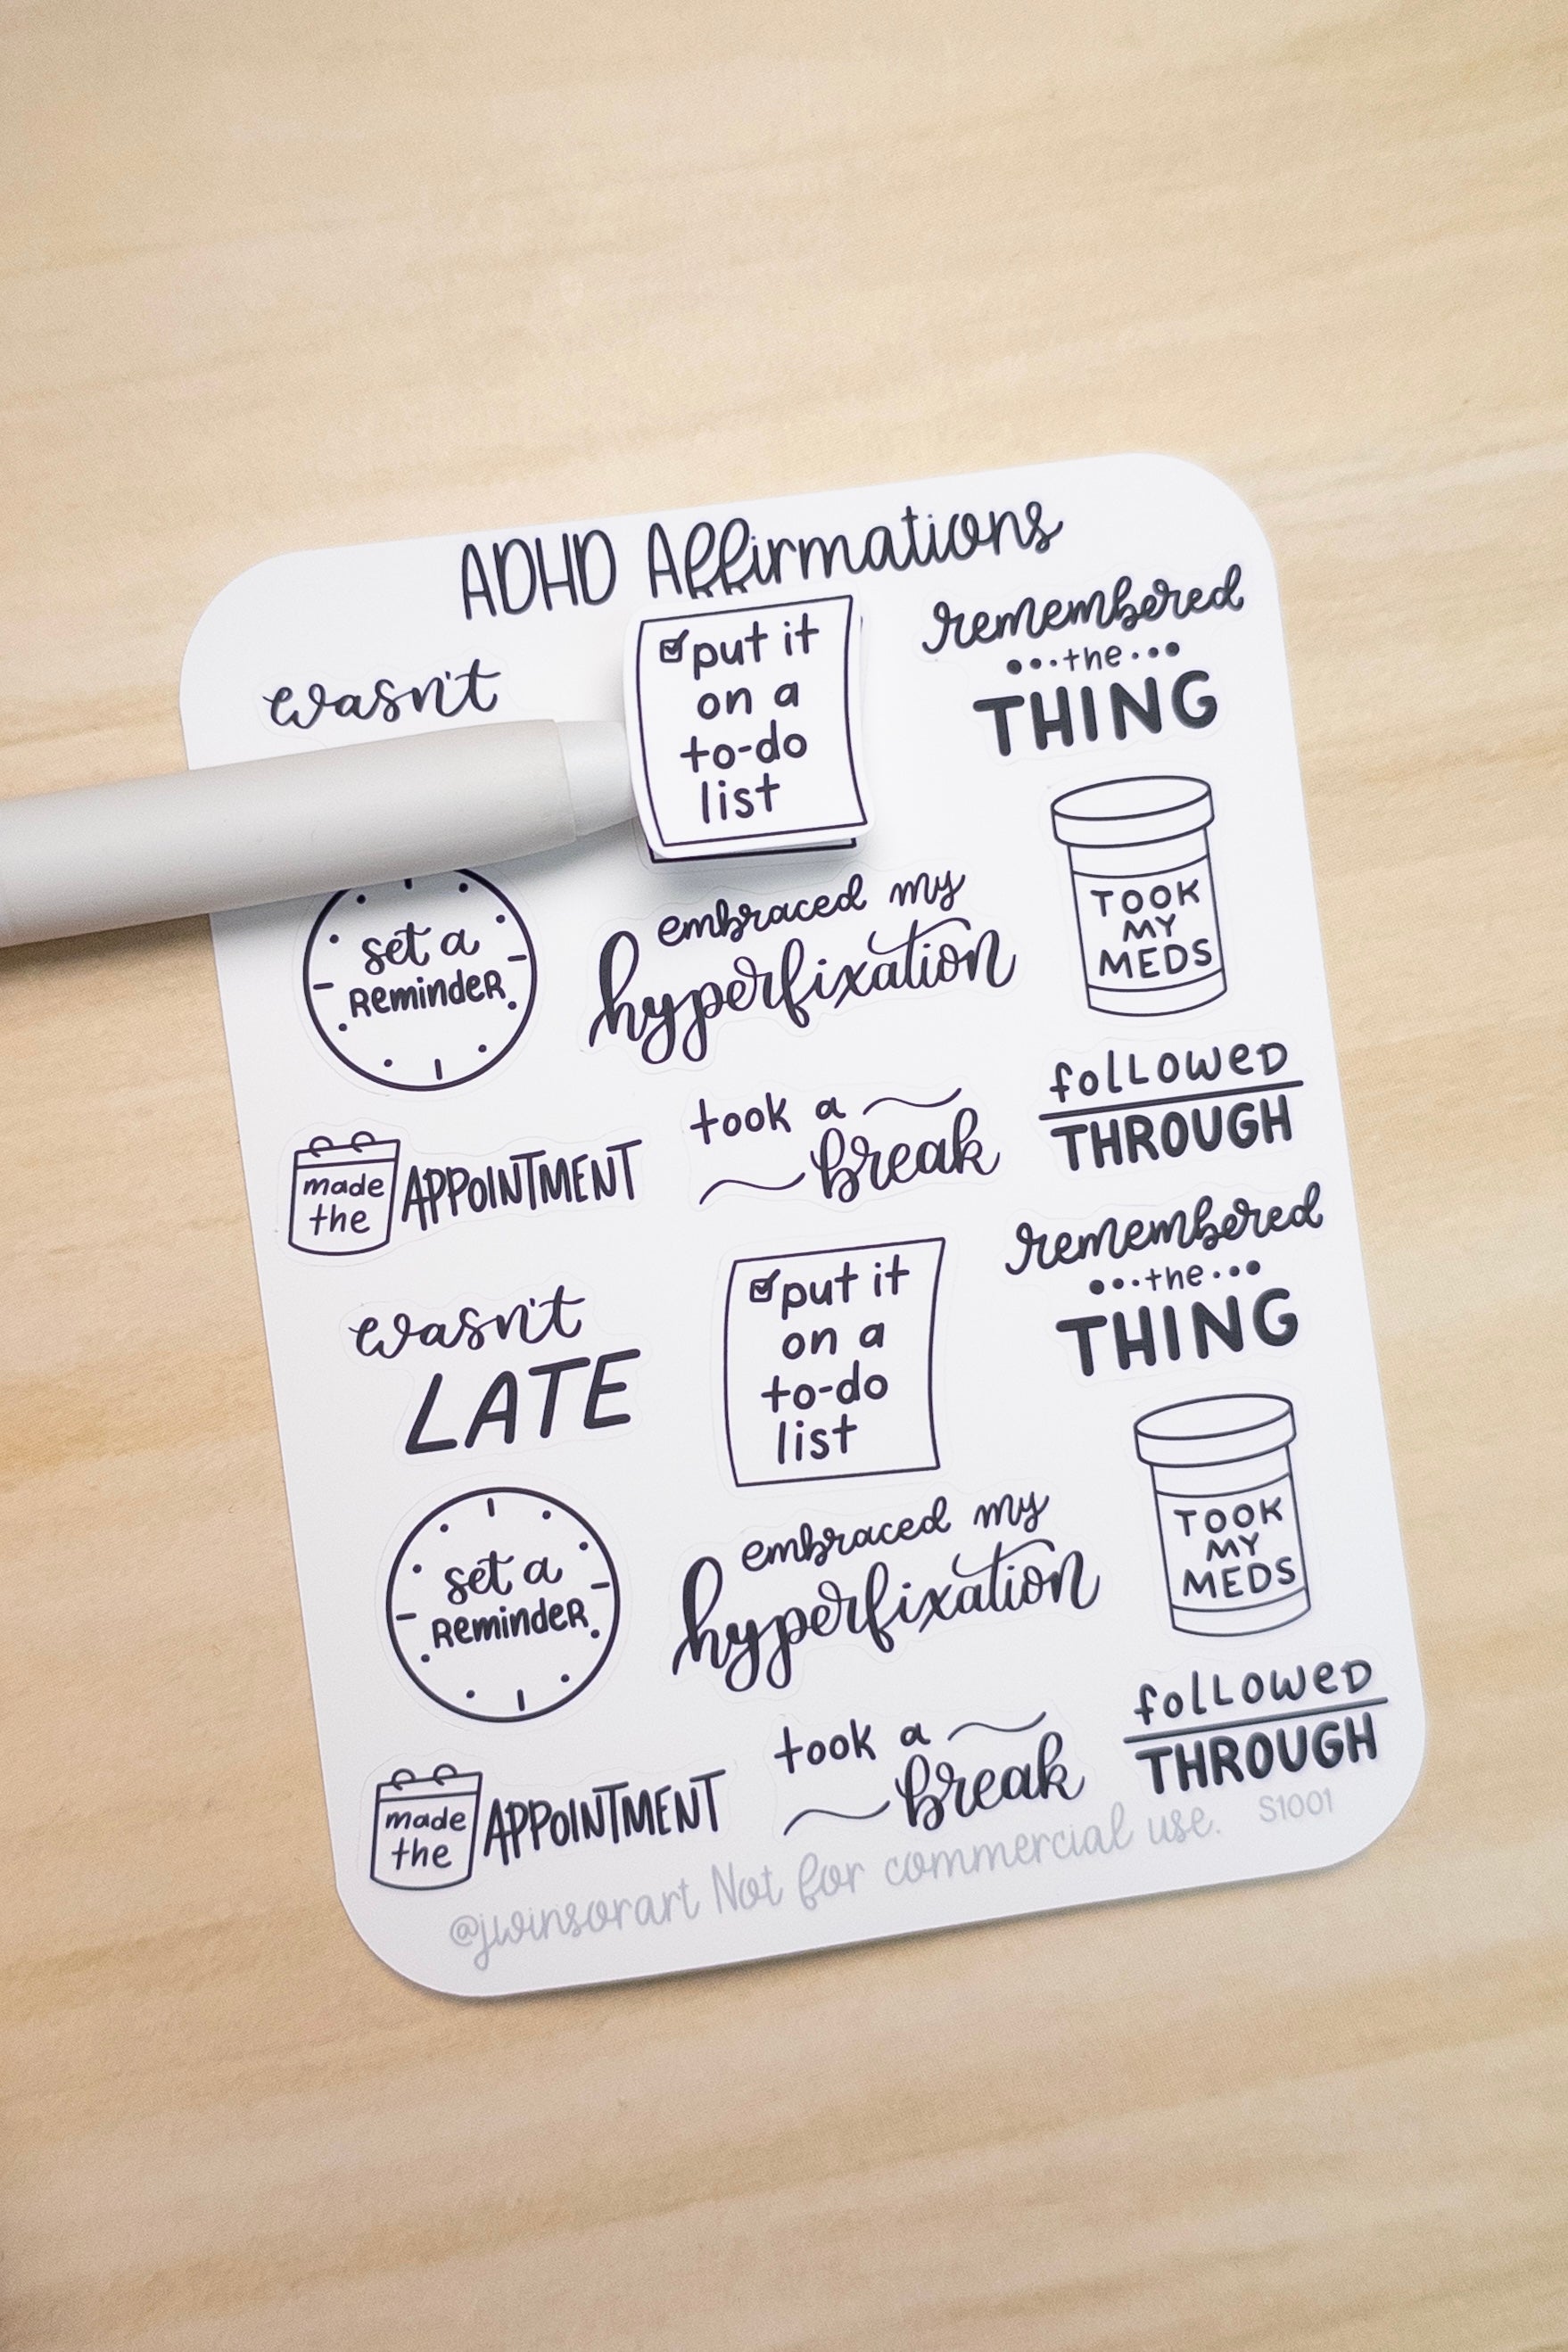 ADHD Affirmations
wasn't
put it
on a
to-do
list
remembered
the
THING
set a
Reminder
embraced my
hyperfixation
TOOK
MY
MEDS
made
the
APPOINTMENT
took a
break
followed
THROUGH
wasn't
LATE
put it
on a
to-do
list
remembered
the
THING
set a
Reminder
embraced my
hyperfixation
TOOK
MY
MEDS
made
the
APPOINTMENT
took a
break
followed
THROUGH
@jwinsorart Not for commercial use. S1001